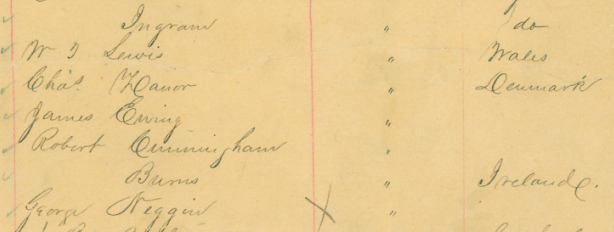 Ingram " do
W T Lewis " Wales
Chas. " Denmark
James Ewing "
Robert Cunningham "
Burns Ireland
George Neggin X "